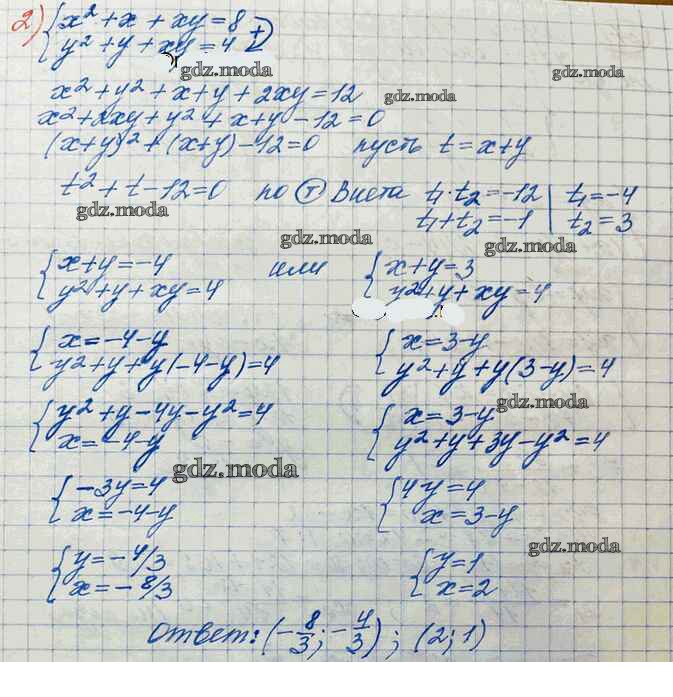 2) { x² + x + xy = 8
{ y² + y + xy = 4 (+)
gdz.moda
gdz.moda
x² + y² + x + y + 2xy = 12
gdz.moda
x² + 2xy + y² + x + y - 12 = 0
(x+y)² + (x+y) - 12 = 0 пусть t = x+y
t² + t - 12 = 0 по (т) Виета t₁·t₂ = -12 | t₁ = -4
t₁ + t₂ = -1 | t₂ = 3
gdz.moda
gdz.moda
gdz.moda
{ x + y = -4 или { x + y = 3
{ y² + y + xy = 4 { y² + y + xy = 4
{ x = -4 - y { x = 3 - y
{ y² + y + y(-4 - y) = 4 { y² + y + y(3 - y) = 4
gdz.moda
{ y² + y - 4y - y² = 4 { x = 3 - y
{ x = -4 - y { y² + y + 3y - y² = 4
gdz.moda
{ -3y = 4 { 4y = 4
{ x = -4 - y { x = 3 - y
gdz.moda
{ y = -4/3 { y = 1
{ x = -8/3 { x = 2
gdz.moda
Ответ: (-8/3; -4/3); (2; 1)